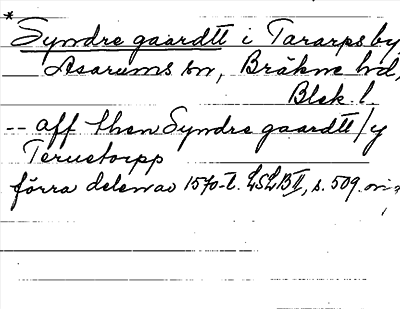 * Syndre gaardtt i Tararps by,
Asarums sn, Bräkne hd,
Blek. l.
-- aff then Syndre gaardtt /y
Terustorpp
förra delen av 1570-t. LSLBII, s. 509. orig